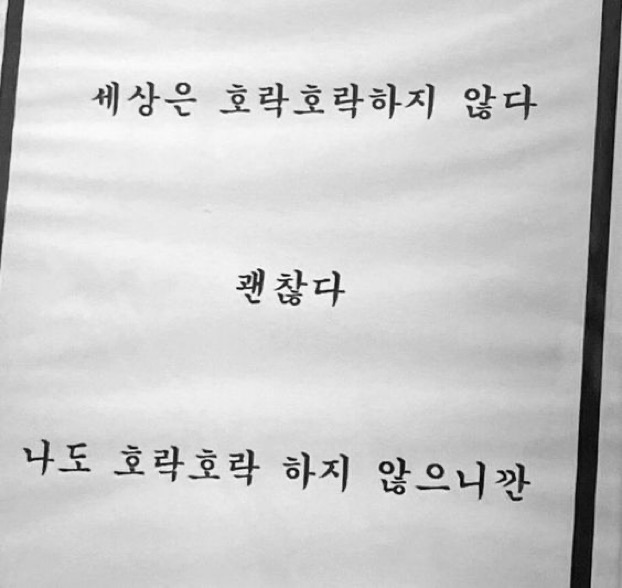 세상은 호락호락하지 않다
괜찮다
나도 호락호락 하지 않으니깐